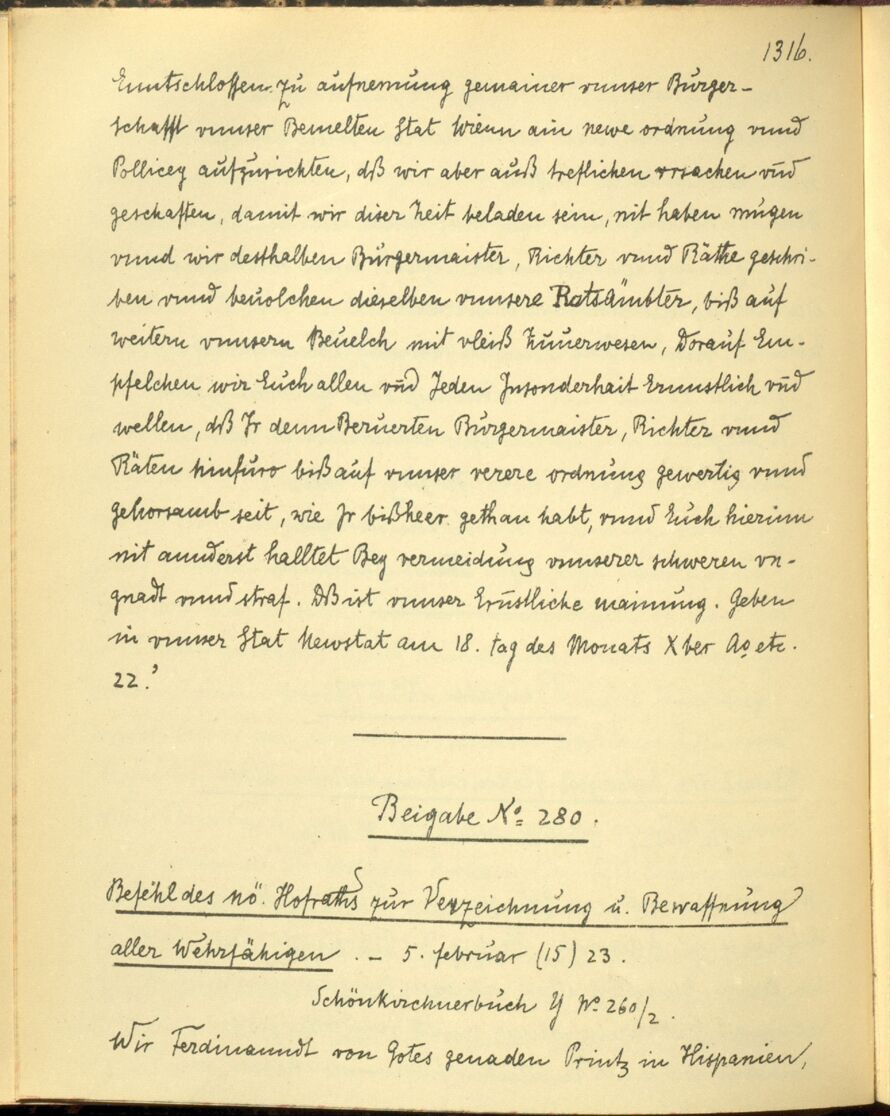 1316.
Enntschlossen zu aufnemung gemainer vnnser Burger-
schafft vnnser Bemelten Stat Wienn ain newe ordnung vnnd
Pollicey aufzurichten, dß wir aber auß treflichen vrsachen vn̄d
geschafften, damit wir diser Zeit beladen sein, nit haben mügen
vnnd wir desthalben Burgermaister, Richter vnnd Räthe geschri-
ben vnnd beuolchen dieselben vnnsere Ratsämbter, biß auf
weitern vnnsern Beuelch mit vleiß Zuuerwesen, Dorauf Em-
pfelchen wir Euch allen vn̄d Jeden Jnsonderhait Ernnstlich vn̄d
wellen, dß Jr denn Beruerten Burgermaister, Richter vnnd
Räten hinfuro biß auf vnnser verere ordnung gewertig vnnd
gehorsamb seit, wie Jr bißheer gethan habt, vnnd Euch hierinn
nit annderst halltet Bey vermeidung vnnserer schweren vn-
gnadt vnnd straf. Dß ist vnnser Ernstliche mainung. Geben
in vnnser Stat Newstat am 18. tag des Monats Xber Ao etc.
22.'
Beigabe No 280.
Befehl des nö. Hofraths zur Verzeichnung u. Bewaffnung
aller Wehrfähigen. – 5. februar (15) 23.
Schönkirchnerbuch Y No 260/2.
Wir Ferdinanndt von Gotes genaden Printz in Hispanien,